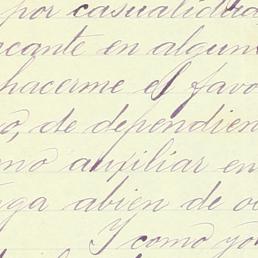 por casualidad
acante en algun
hacerme el favo
o, de dependien
mo auxiliar en
ga abien de o
Y como yo